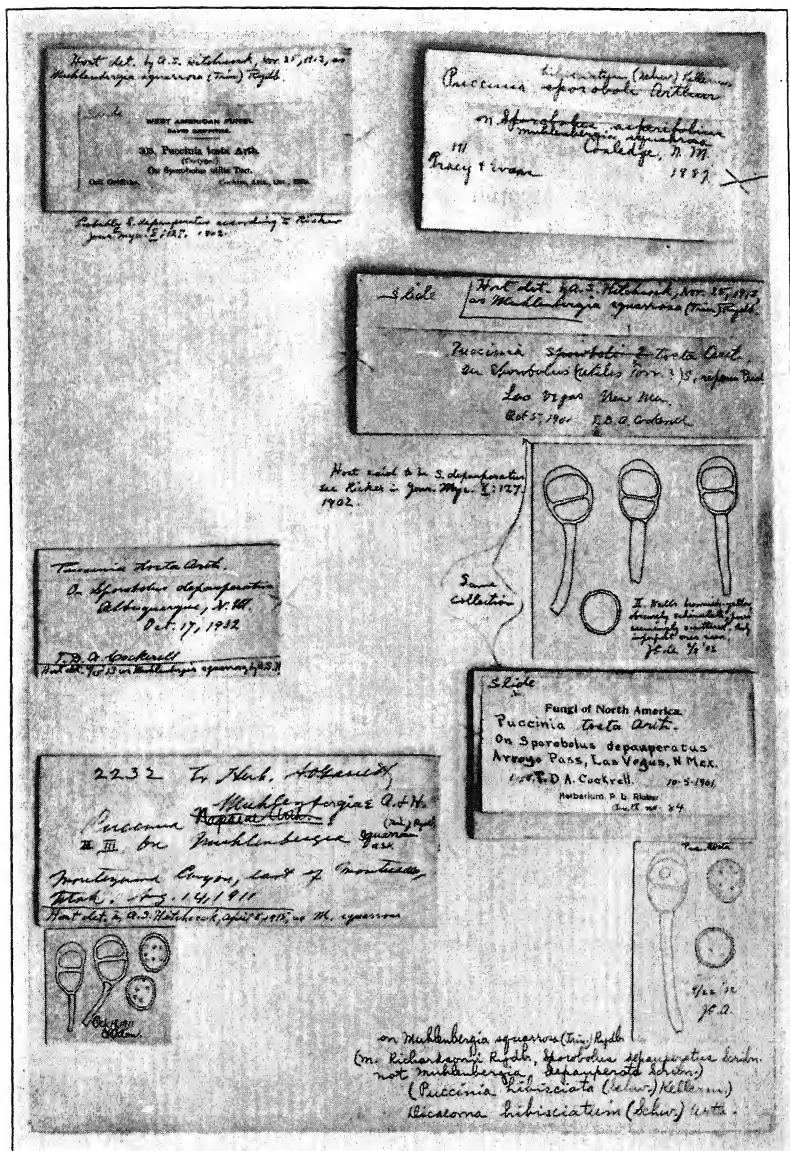 Host det. by A.S. Hitchcock, Nov. 25, 1913, as
Muhlenbergia squarrosa (Trin.) Rydb.
Slide
WEST AMERICAN FUNGI.
DAVID GRIFFITHS.
Puccinia tosta Arth.
(Cotype)
On Sporobolus utilis Torr.
Coll. Griffiths. Cochise, Ariz., Oct.,
Probably S. depauperatus according to Ricker
Jour. Myc. X:127. 1902.
hibisciatum (Schw.) Kellerm.
Puccinia sporoboli Arthur
on Sporobolus asperifolius
Muhlenbergia squarrosa
Coolidge, N. M.
191 1887
Tracy & Evans
slide
Host det. by A. S. Hitchcock, Nov. 25, 1913,
as Muhlenbergia squarrosa (Trin.) Rydb.
Puccinia sporoboli tosta Arth.
on Sporobolus (utilis Torr.?)
Las Vegas New Mex.
Oct 5, 1901 T.D.A. Cockerell
Host said to be S. depauperatus
see Ricker in Jour. Myc. X:127.
1902.
Same
collection
II. Walls brownish yellow
sparsely echinulate, pores
seemingly scattered, only
imperfect ones seen.
Puccinia tosta Arth.
On Sporobolus depauperatus
Albuquerque, N. M.
Oct. 17, 1902
T. D. A. Cockerell
Host det. as Muhlenbergia squarrosa by A.S.H.
Slide
Fungi of North America.
Puccinia tosta Arth.
On Sporobolus depauperatus
Arroyo Pass, Las Vegas, N Mex.
T. D A. Cockrell. 10-5-1901
Herbarium, P. L. Ricker
2232 Ex Herb. A O Garrett
Muhlenbergiae A. & H.
Puccinia
(Trin.) Rydb.
II III on Muhlenbergia squarrosa
Montezuma Canyon, east of Monticello,
Utah. Aug. 14, 1911
Host det. by A. S. Hitchcock, April 5, 1915, as M. squarrosa
Puc. tosta
on Muhlenbergia squarrosa (Trin.) Rydb
(M. Richardsonii Rydb., Sporobolus depauperatus Scribn.
not Muhlenbergia depauperata Scribn.)
(Puccinia hibisciata (Schw.) Kellerm.)
Dicaeoma hibisciatum (Schw.) Arth.